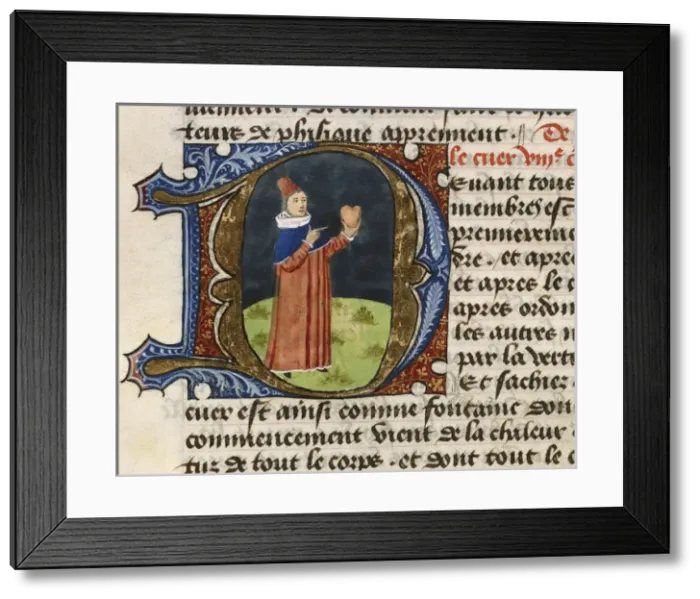 teurs de phisique apprennent . De
le cuer viii.e
DEuant tous
membres est
premiereme
dre . et apre
et apres le c
apres ordon
les autres
par la vert
Et sachies
cuer est ainsi comme fontaine don
commencement vient de la chaleur
tur de tout le corps . et dont tout le c